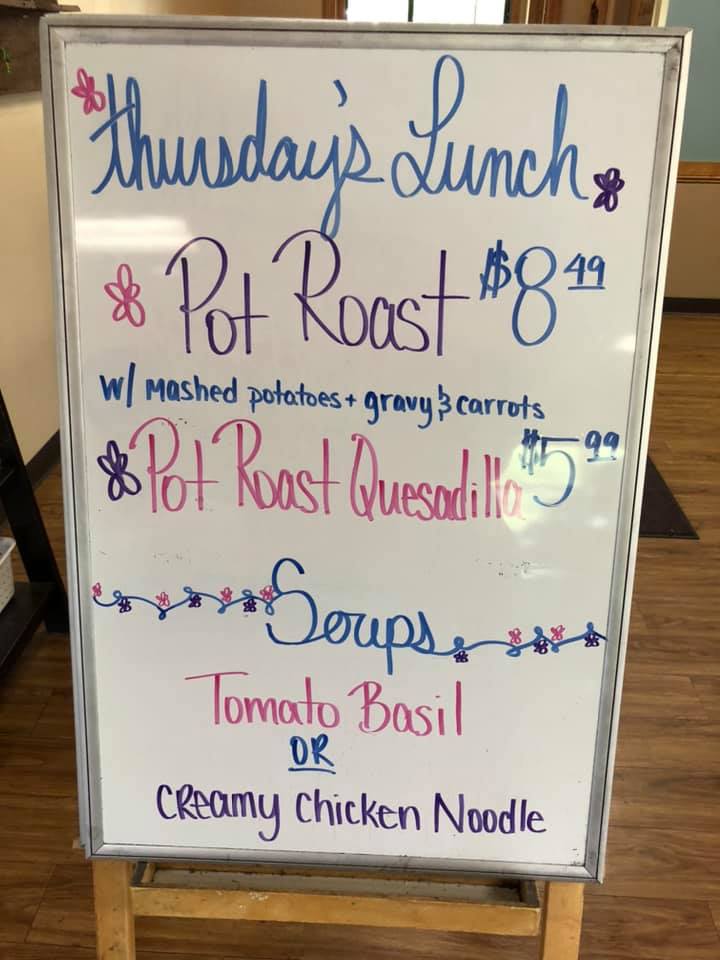 Thursday's Lunch
Pot Roast $8 49
w/ Mashed potatoes + gravy & carrots
Pot Roast Quesadilla $5 99
Soups
Tomato Basil
OR
Creamy Chicken Noodle